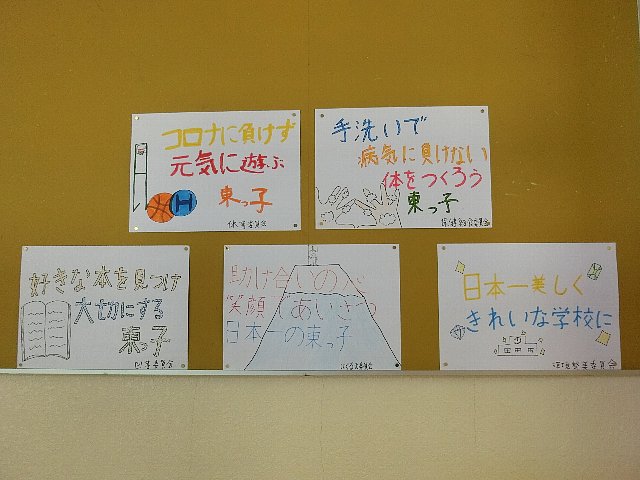 コロナに負けず
元気に遊ぶ
東っ子
体育委員会
手洗いで
病気に負けない
体をつくろう
東っ子
好きな本を見つけ
大切にする
東っ子
図書委員会
助け合いの心
笑顔であいさつ
日本一の東っ子
日本一美しく
きれいな学校に